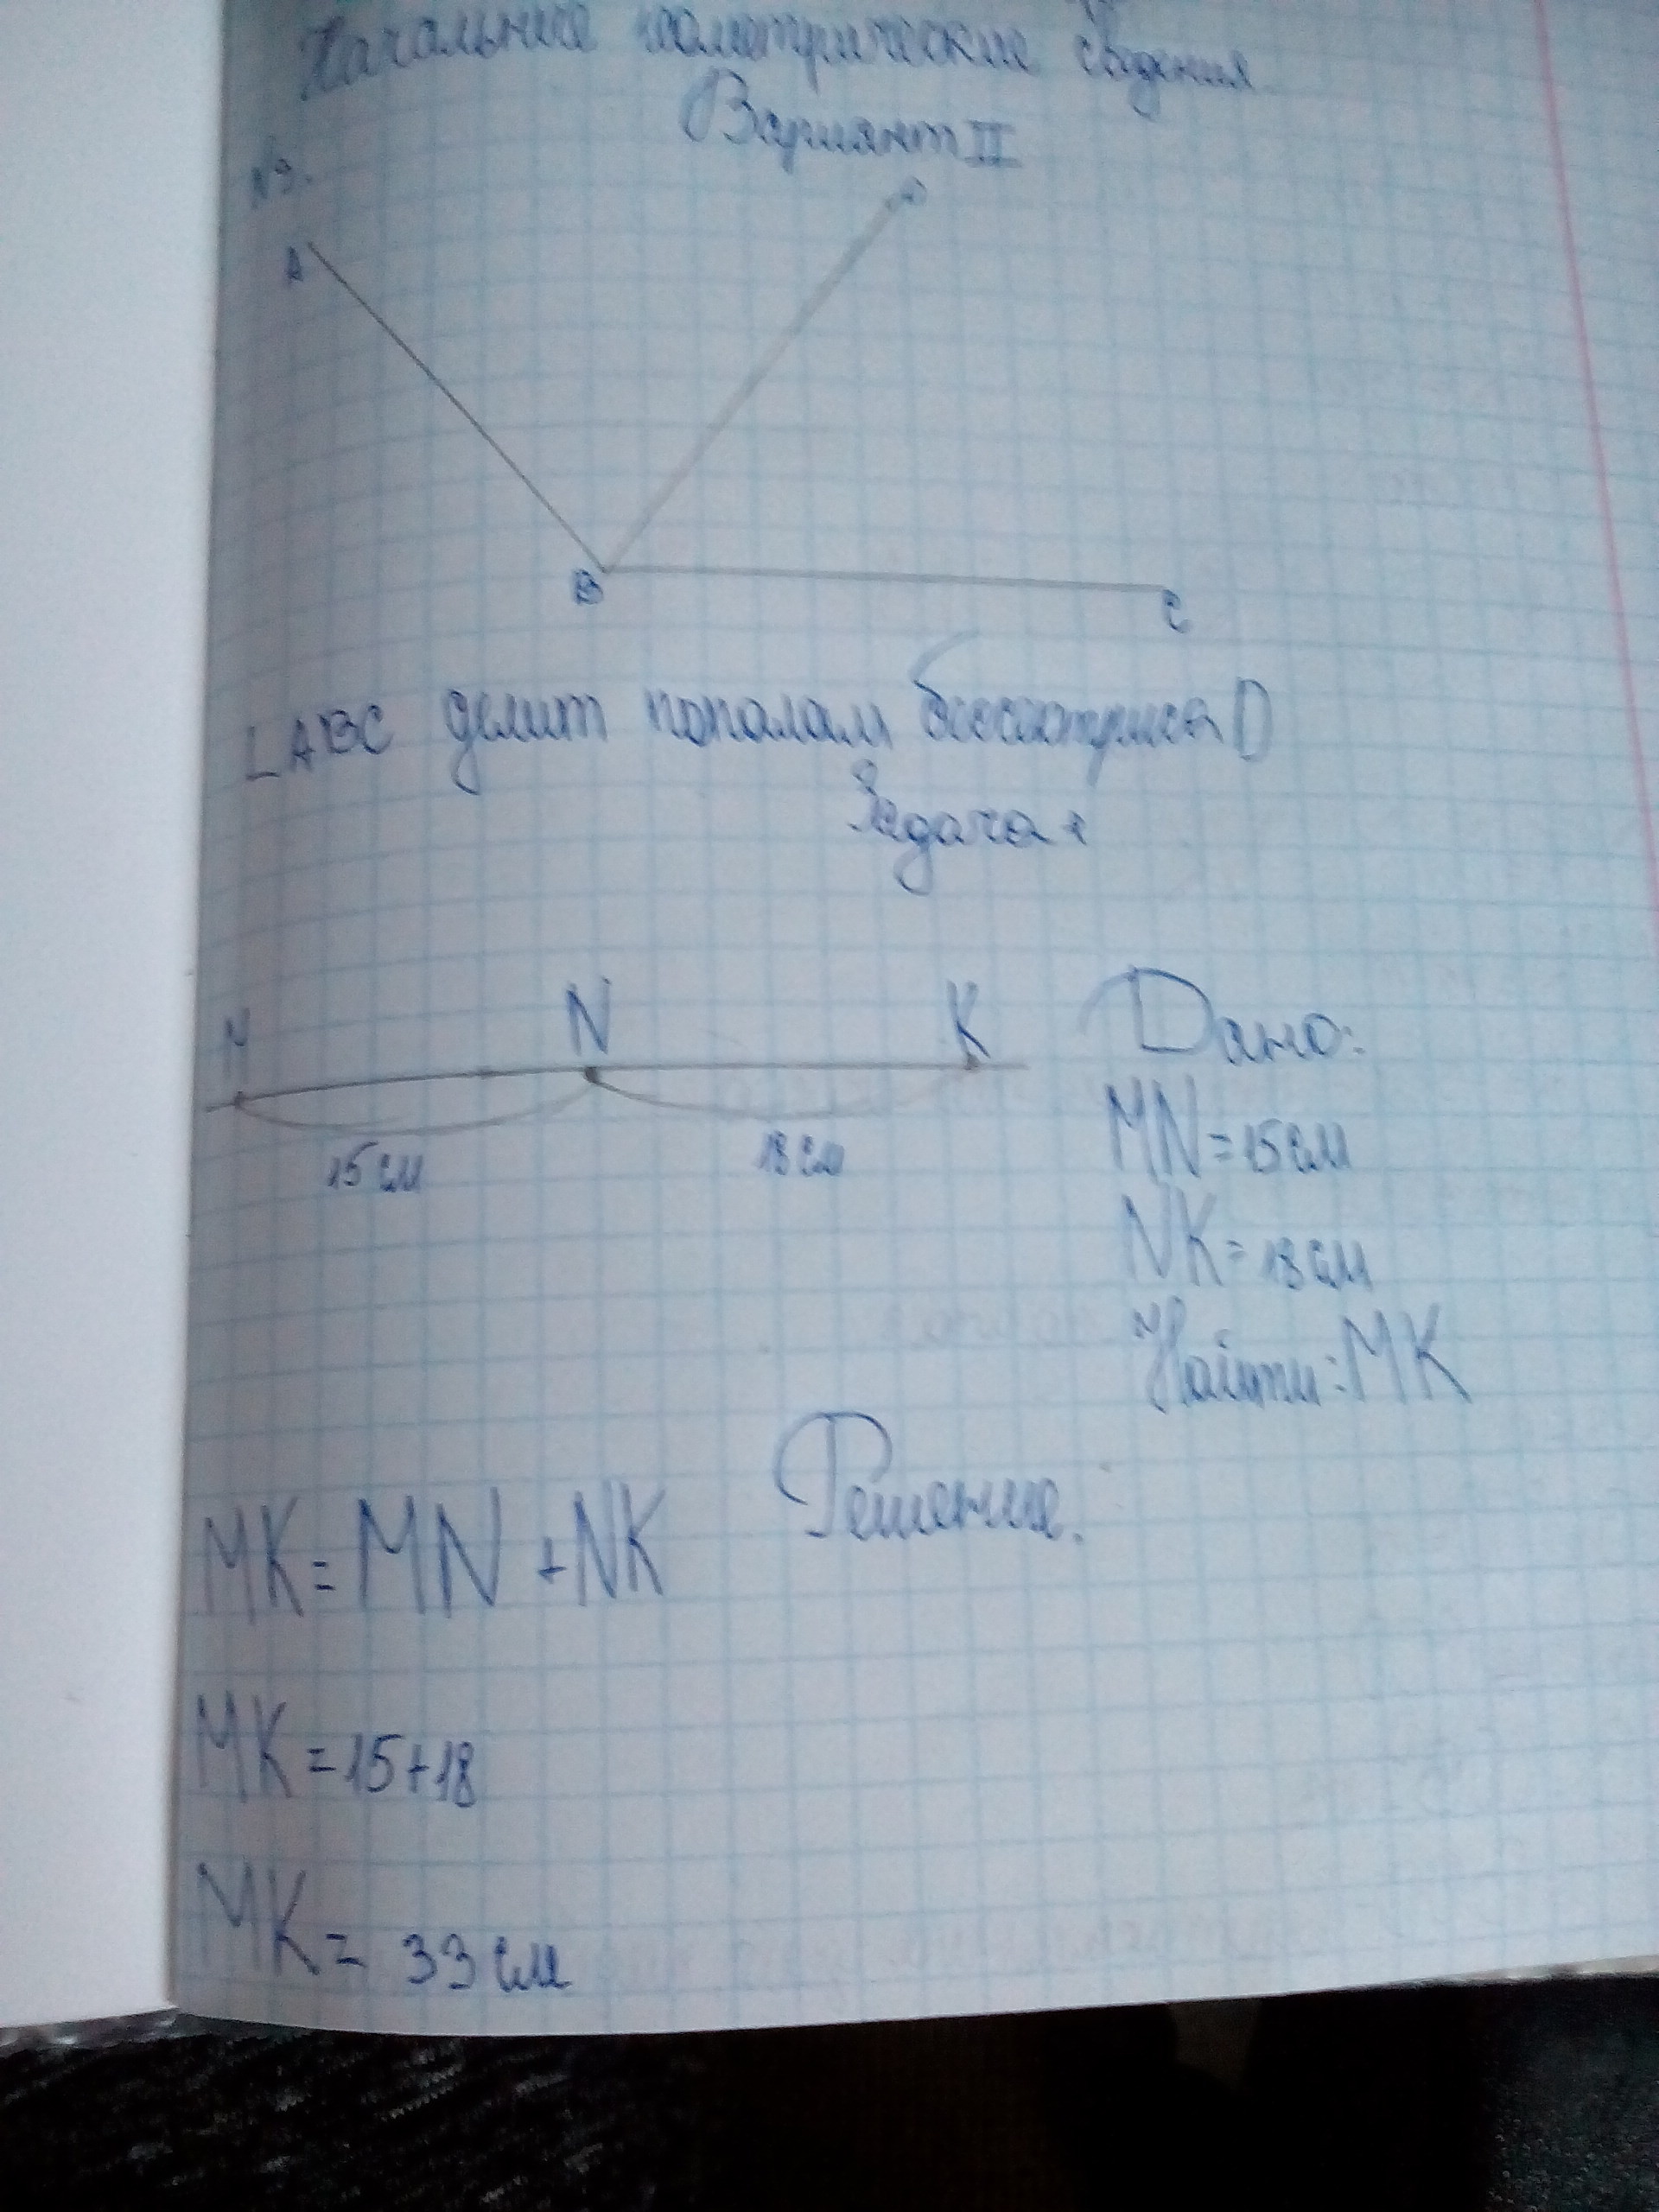 Начальные геометрические сведения
Вариант II
№3.
A
D
B
C
∟ABC делит пополам биссектриса D
Задача 1
M N K
15 см 18 см
Дано:
MN=15см
NK=18см
Найти: MK
Решение.
MK=MN+NK
MK=15+18
MK= 33 см